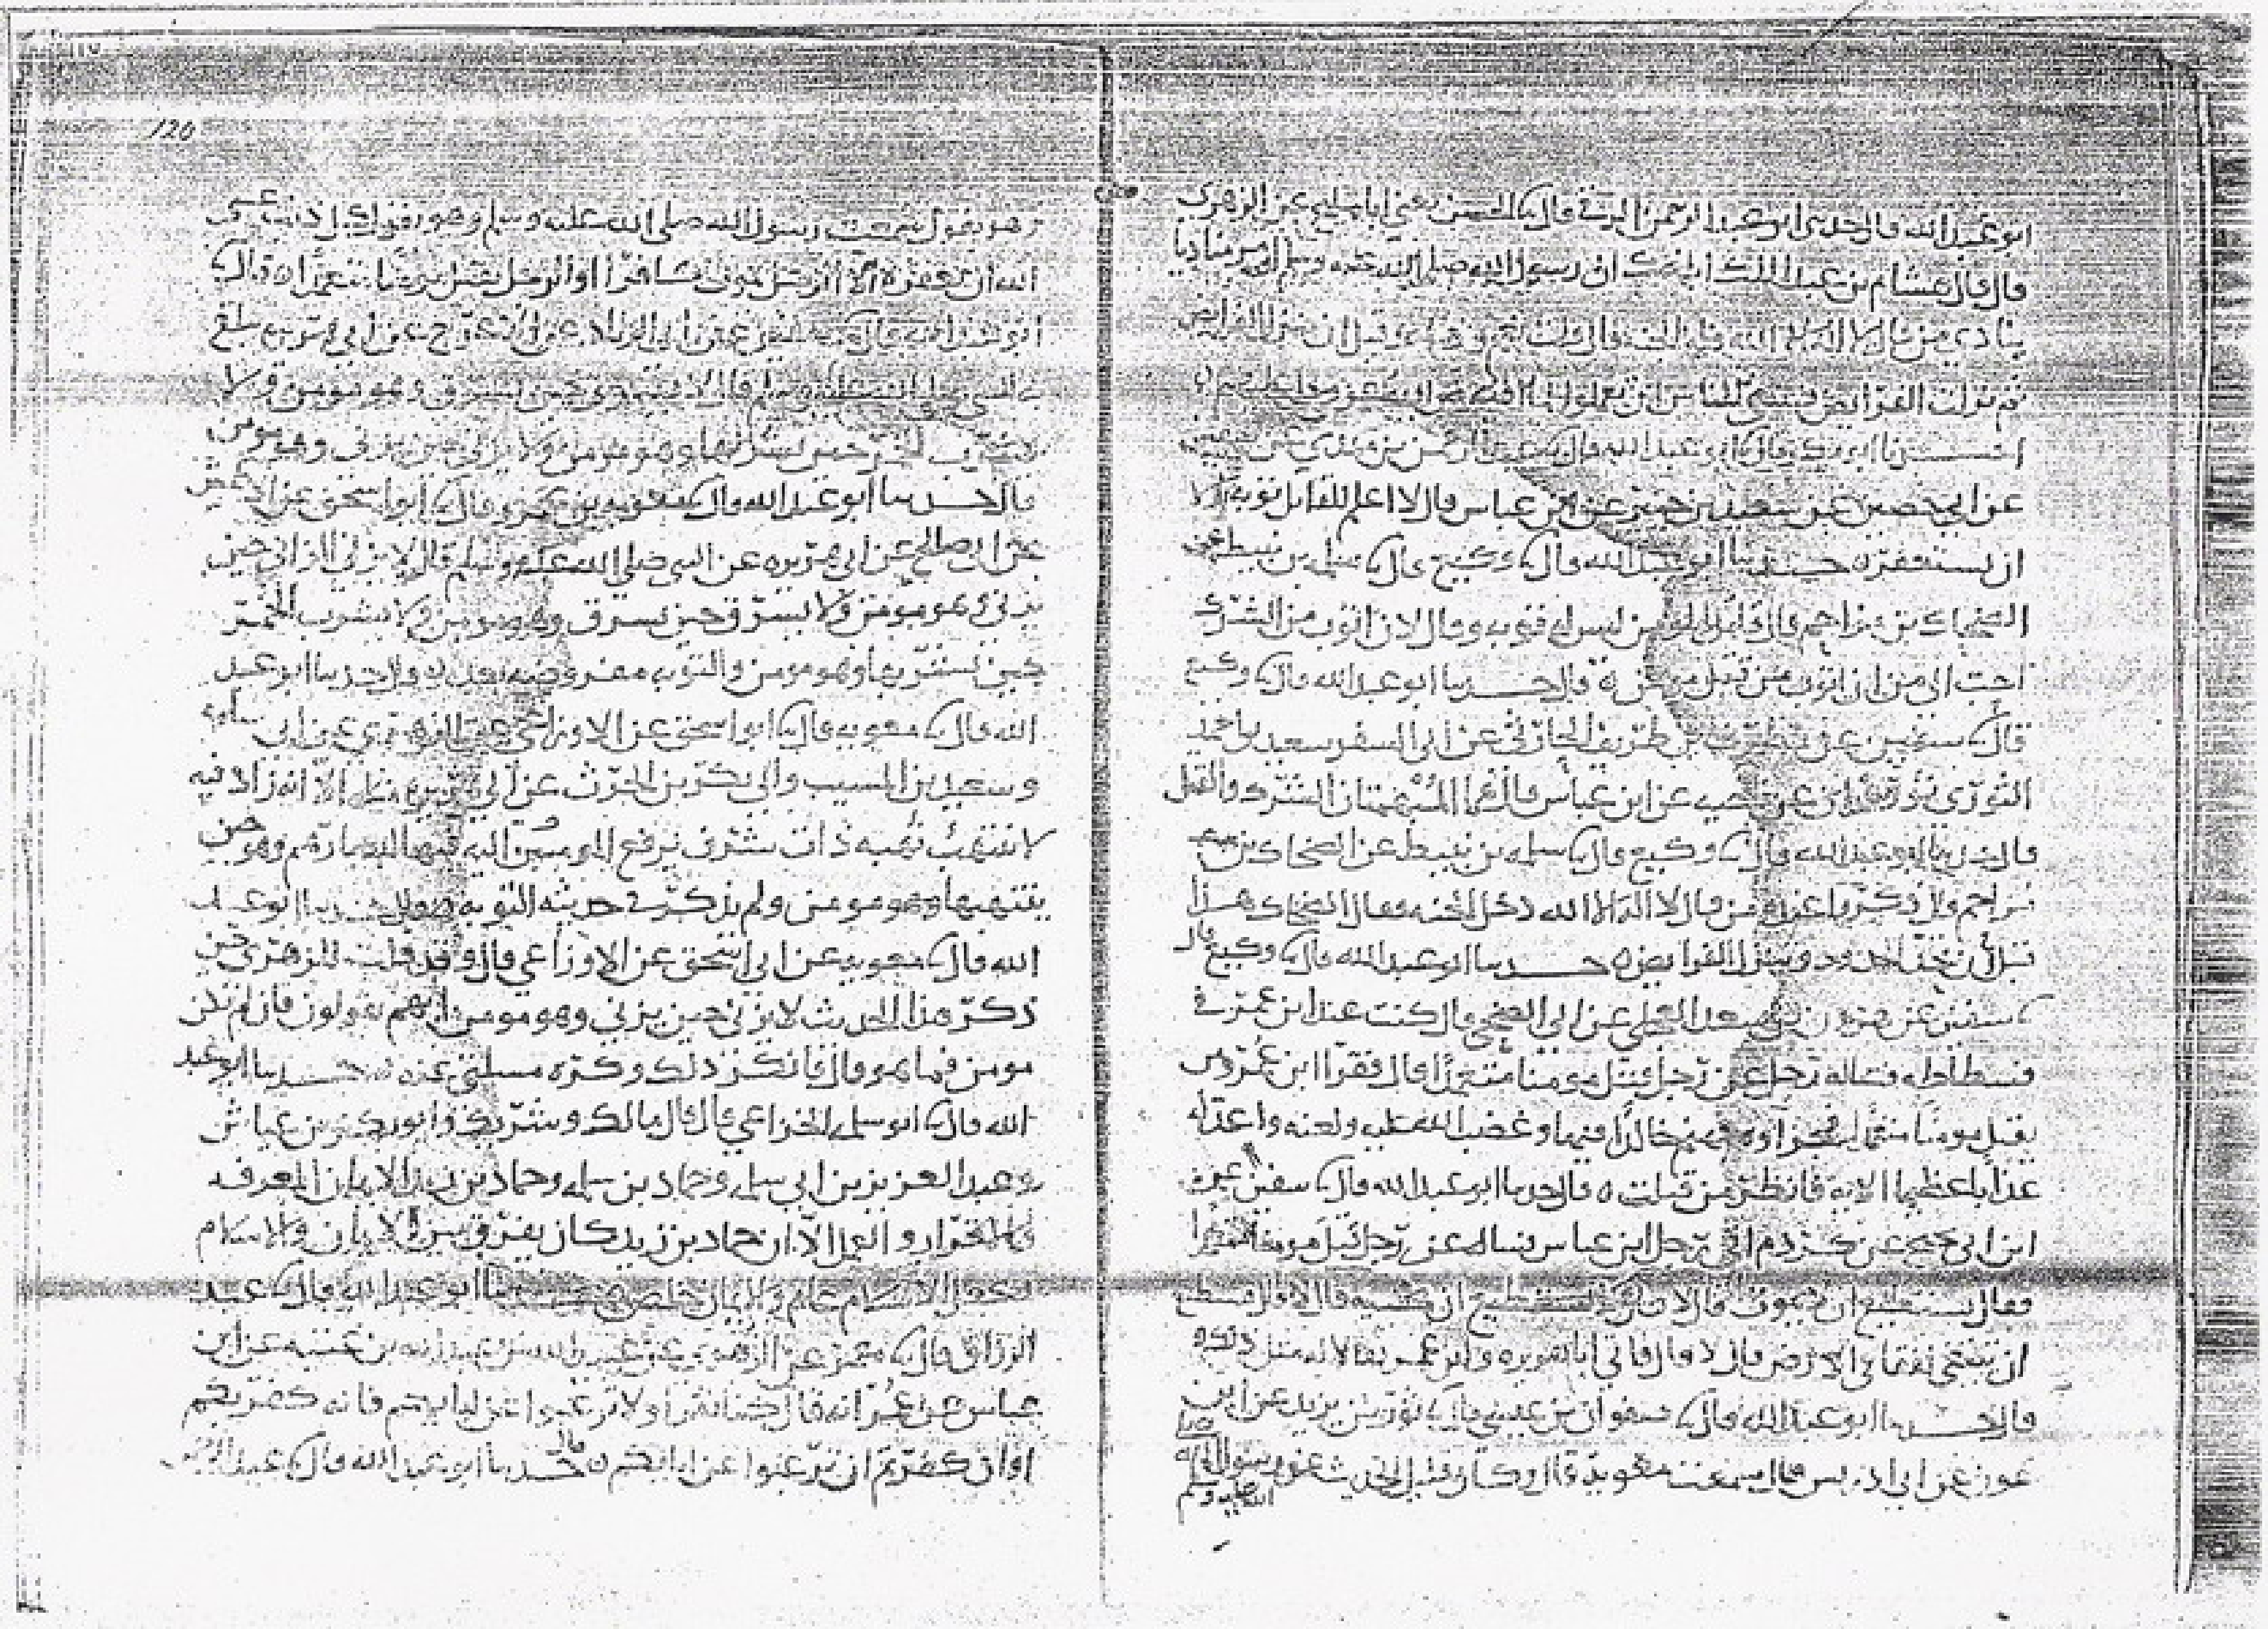 ابو عبد الله قال حدثنى ابو عبد الرحمن الرقى قال ثنا الحسن يعنى ابا المليح عن الزهرى
قال قال هشام بن عبد الملك ابلغك ان رسول الله صلى الله عليه وسلم امر مناديا
ينادى من قال لا اله الا الله فله الجنة قال قلت نعم وذاك قبل ان تنزل الفرايض
ثم نزلت الفرايض فينبغى للناس ان يعملوا بما افترض الله عليهم
ابو عبد الله قال ثنا عبد الرحمن بن مهدى عن
عن ابى حصين عن سعيد بن جبير عن ابن عباس قال لا اعلم للقاتل توبة الا
ان يستغفره حدثنا ابو عبد الله قال ثنا وكيع قال ثنا سلمه بن نبيط عن
الضحاك بن مزاحم قال ليس له توبه وقال لان اتوب من الشرك
احب الى من ان اتوب من قتل مومن ه قال حدثنا ابو عبد الله قال ثنا وكيع
قال ثنا سفين عن مطرف بن طريف الحارثى عن ابى السفر سعيد بن احمد
الثورى عن ناجيه عن ابن عباس قال هما المبهمتان الشرك والقتل
قال حدثنا ابو عبد الله قال ثنا وكيع قال ثنا سلمه بن نبيط عن الضحاك بن
مزاحم قال ذكروا عنده من قال لا اله الا الله دخل الجنه فقال الضحاك هذا
قبل ان تحد الحدود وتنزل الفرايض ه حدثنا ابو عبد الله قال ثنا وكيع قال
ثنا سفين عن هرون بن سعد العجلى عن ابى الضحى قال كنت عند ابن عمر فى
فسطاطه فساله رجل عن رجل قتل مومنا متعمدا قال فقرا ابن عمر ومن
يقتل مومنا متعمدا فجزاوه جهنم خالدا فيها وغضب الله عليه ولعنه واعد له
عذابا عظيما الايه فانظر من قتلت ه قال حدثنا ابو عبد الله قال ثنا سفين عن
ابن ابى نجيح عن كردم اتى رجل ابن عباس فساله عن رجل قتل مومنا متعمدا
فقال يستطيع ان لا يموت قال لا قال فيستطيع ان يحييه قال لا قال يستطيع
ان يبتغى نفقا فى الارض قال لا قال فاتى ابا هريره وابن عمر فقالا له مثل ذلك ه
قال حدثنا ابو عبد الله قال ثنا صفوان بن عيسى قال ثنا ثور بن يزيد عن ابى
عون عن ابى ادريس قال سمعت معويه قال وكان قليل الحديث عن رسول الله صلى الله عليه وسلم
وهو يقول سمعت رسول الله صلى الله عليه وسلم وهو يقول كل ذنب عسى
الله ان يغفره الا الرجل يموت كافرا او الرجل يقتل مومنا متعمدا ه قال
ابو عبد الله قال ثنا سفين عن ابى الزناد عن الاعرج عن ابى هريره يبلغ
به النبى صلى الله عليه وسلم قال لا يسرق حين يسرق وهو مومن ولا
يشرب الخمر حين يشربها وهو مومن ولا يزنى حين يزنى وهو مومن
قال حدثنا ابو عبد الله قال ثنا معويه بن عمرو قال ثنا ابو اسحق عن الاعمش
عن ابى صالح عن ابى هريره عن النبى صلى الله عليه وسلم قال لا يزنى الزانى حين
يزنى وهو مومن ولا يسرق حين يسرق وهو مومن ولا يشرب الخمر
حين يشربها وهو مومن والتوبه معروضه بعد ه قال حدثنا ابو عبد
الله قال ثنا معويه قال ثنا ابو اسحق عن الاوزاعى عن الزهرى عن ابى سلمه
وسعيد بن المسيب وابى بكر بن الحرث عن ابى هريره مثله الا انه زاد فيه
لا ينتهب نهبه ذات شرف يرفع المومنين اليه فيها ابصارهم وهو حين
ينتهبها وهو مومن ولم يذكر فى حديثه التوبه حدثنا ابو عبد
الله قال ثنا معويه عن ابى اسحق عن الاوزاعى قال وقد قلت للزهرى حين
ذكر هذا الحديث لا يزنى حين يزنى وهو مومن انهم يقولون فان لم يكن
مومن فما هو قال فانكر ذلك وكره مسلتى عنه ه حدثنا ابو عبد
الله قال ثنا ابو سلمه الخزاعى قال قال مالك وشريك وابو بكر بن عياش
وعبد العزيز بن ابى سلمه وحماد بن سلمه وحماد بن زيد الايمان المعرفه
والاقرار والعمل الا ان حماد بن زيد كان يفرق بين الايمان والاسلام
يجعل الاسلام عام والايمان خاص حدثنا ابو عبد الله قال ثنا عبد
الرزاق قال ثنا معمر عن الزهرى عن عبيد الله بن عبد الله بن عتبه عن ابن
عباس عن عمر انه قال كنا نقرا ولا ترغبوا عن ابايكم فانه كفر بكم
او ان كفر بكم ان ترغبوا عن ابايكم ه قال حدثنا ابو عبد الله قال ثنا عبد الرحمن
120